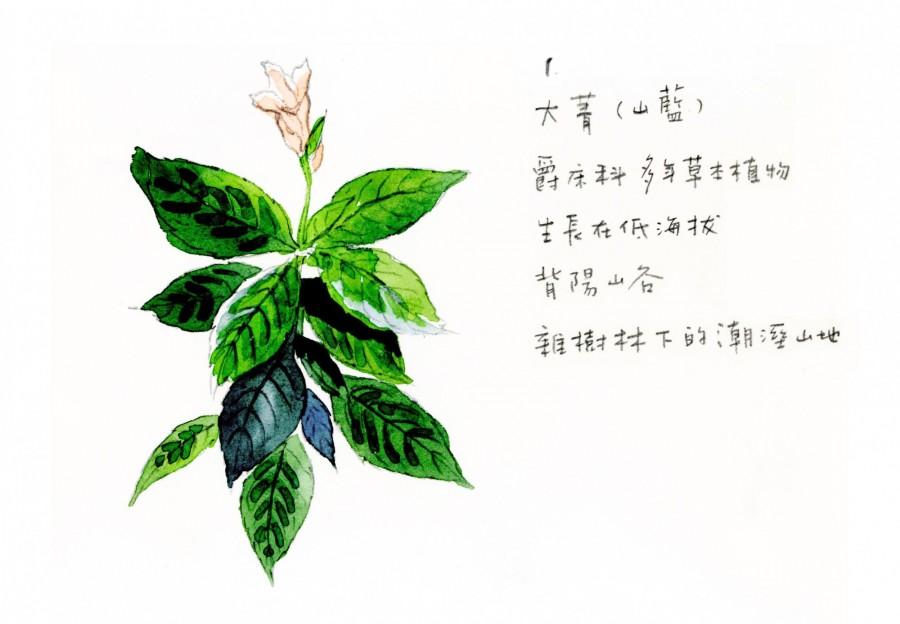 1.
大菁（山藍）
爵床科 多年草本植物
生長在低海拔
背陽山谷
雜樹林下的潮溼山地